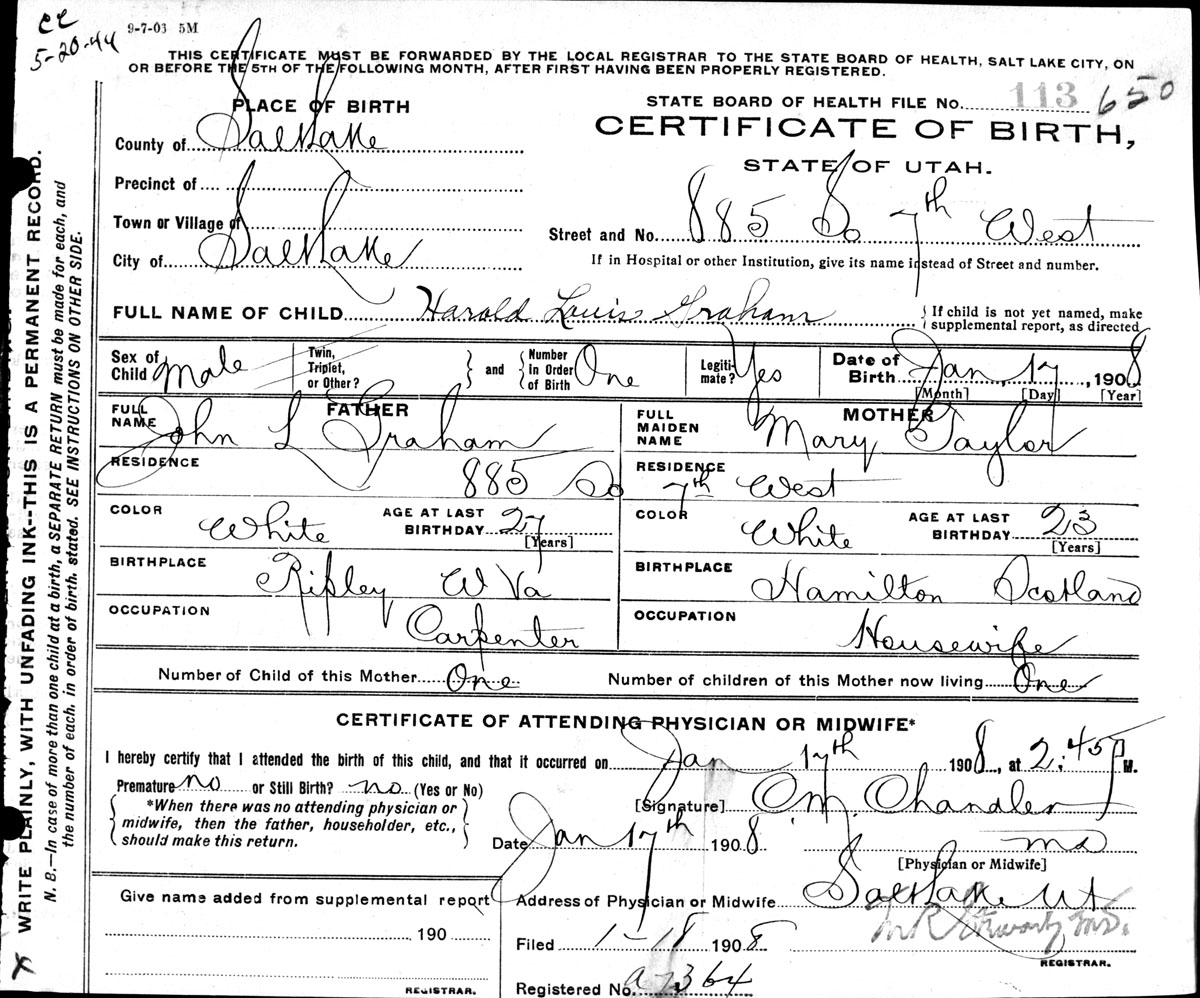 CC
5-20-44
9-7-03 5M
THIS CERTIFICATE MUST BE FORWARDED BY THE LOCAL REGISTRAR TO THE STATE BOARD OF HEALTH, SALT LAKE CITY, ON
OR BEFORE THE 5TH OF THE FOLLOWING MONTH, AFTER FIRST HAVING BEEN PROPERLY REGISTERED.
PLACE OF BIRTH
County of Salt Lake
Precinct of
Town or Village of
City of Salt Lake
STATE BOARD OF HEALTH FILE No. 113 650
CERTIFICATE OF BIRTH,
STATE OF UTAH.
Street and No. 885 So 7th West
If in Hospital or other Institution, give its name instead of Street and number.
FULL NAME OF CHILD Harold Louis Graham
If child is not yet named, make
supplemental report, as directed
Sex of Child Male
Twin, Triplet, or Other?
and
Number in Order of Birth One
Legitimate? Yes
Date of Birth Jan, 17, 1908
[Month] [Day] [Year]
FATHER
FULL NAME John L Graham
MOTHER
FULL MAIDEN NAME Mary Taylor
RESIDENCE 885 So 7th West
RESIDENCE
COLOR White
AGE AT LAST BIRTHDAY 27
[Years]
COLOR White
AGE AT LAST BIRTHDAY 23
[Years]
BIRTHPLACE Ripley W Va
BIRTHPLACE Hamilton Scotland
OCCUPATION Carpenter
OCCUPATION Housewife
Number of Child of this Mother One
Number of children of this Mother now living One
CERTIFICATE OF ATTENDING PHYSICIAN OR MIDWIFE*
I hereby certify that I attended the birth of this child, and that it occurred on Jan 17th 1908, at 2:45 P M.
Premature no or Still Birth? no (Yes or No)
*When there was no attending physician or
midwife, then the father, householder, etc.,
should make this return.
[Signature] O.M. Chandler
Date Jan 17th 1908
MD
[Physician or Midwife]
Give name added from supplemental report
190
REGISTRAR.
Address of Physician or Midwife Salt Lake Ut
Filed 1-18 1908
REGISTRAR.
Registered No. a7364
WRITE PLAINLY, WITH UNFADING INK--THIS IS A PERMANENT RECORD.
N. B.—In case of more than one child at a birth, a SEPARATE RETURN must be made for each, and
the number of each, in order of birth, stated. SEE INSTRUCTIONS ON OTHER SIDE.
X